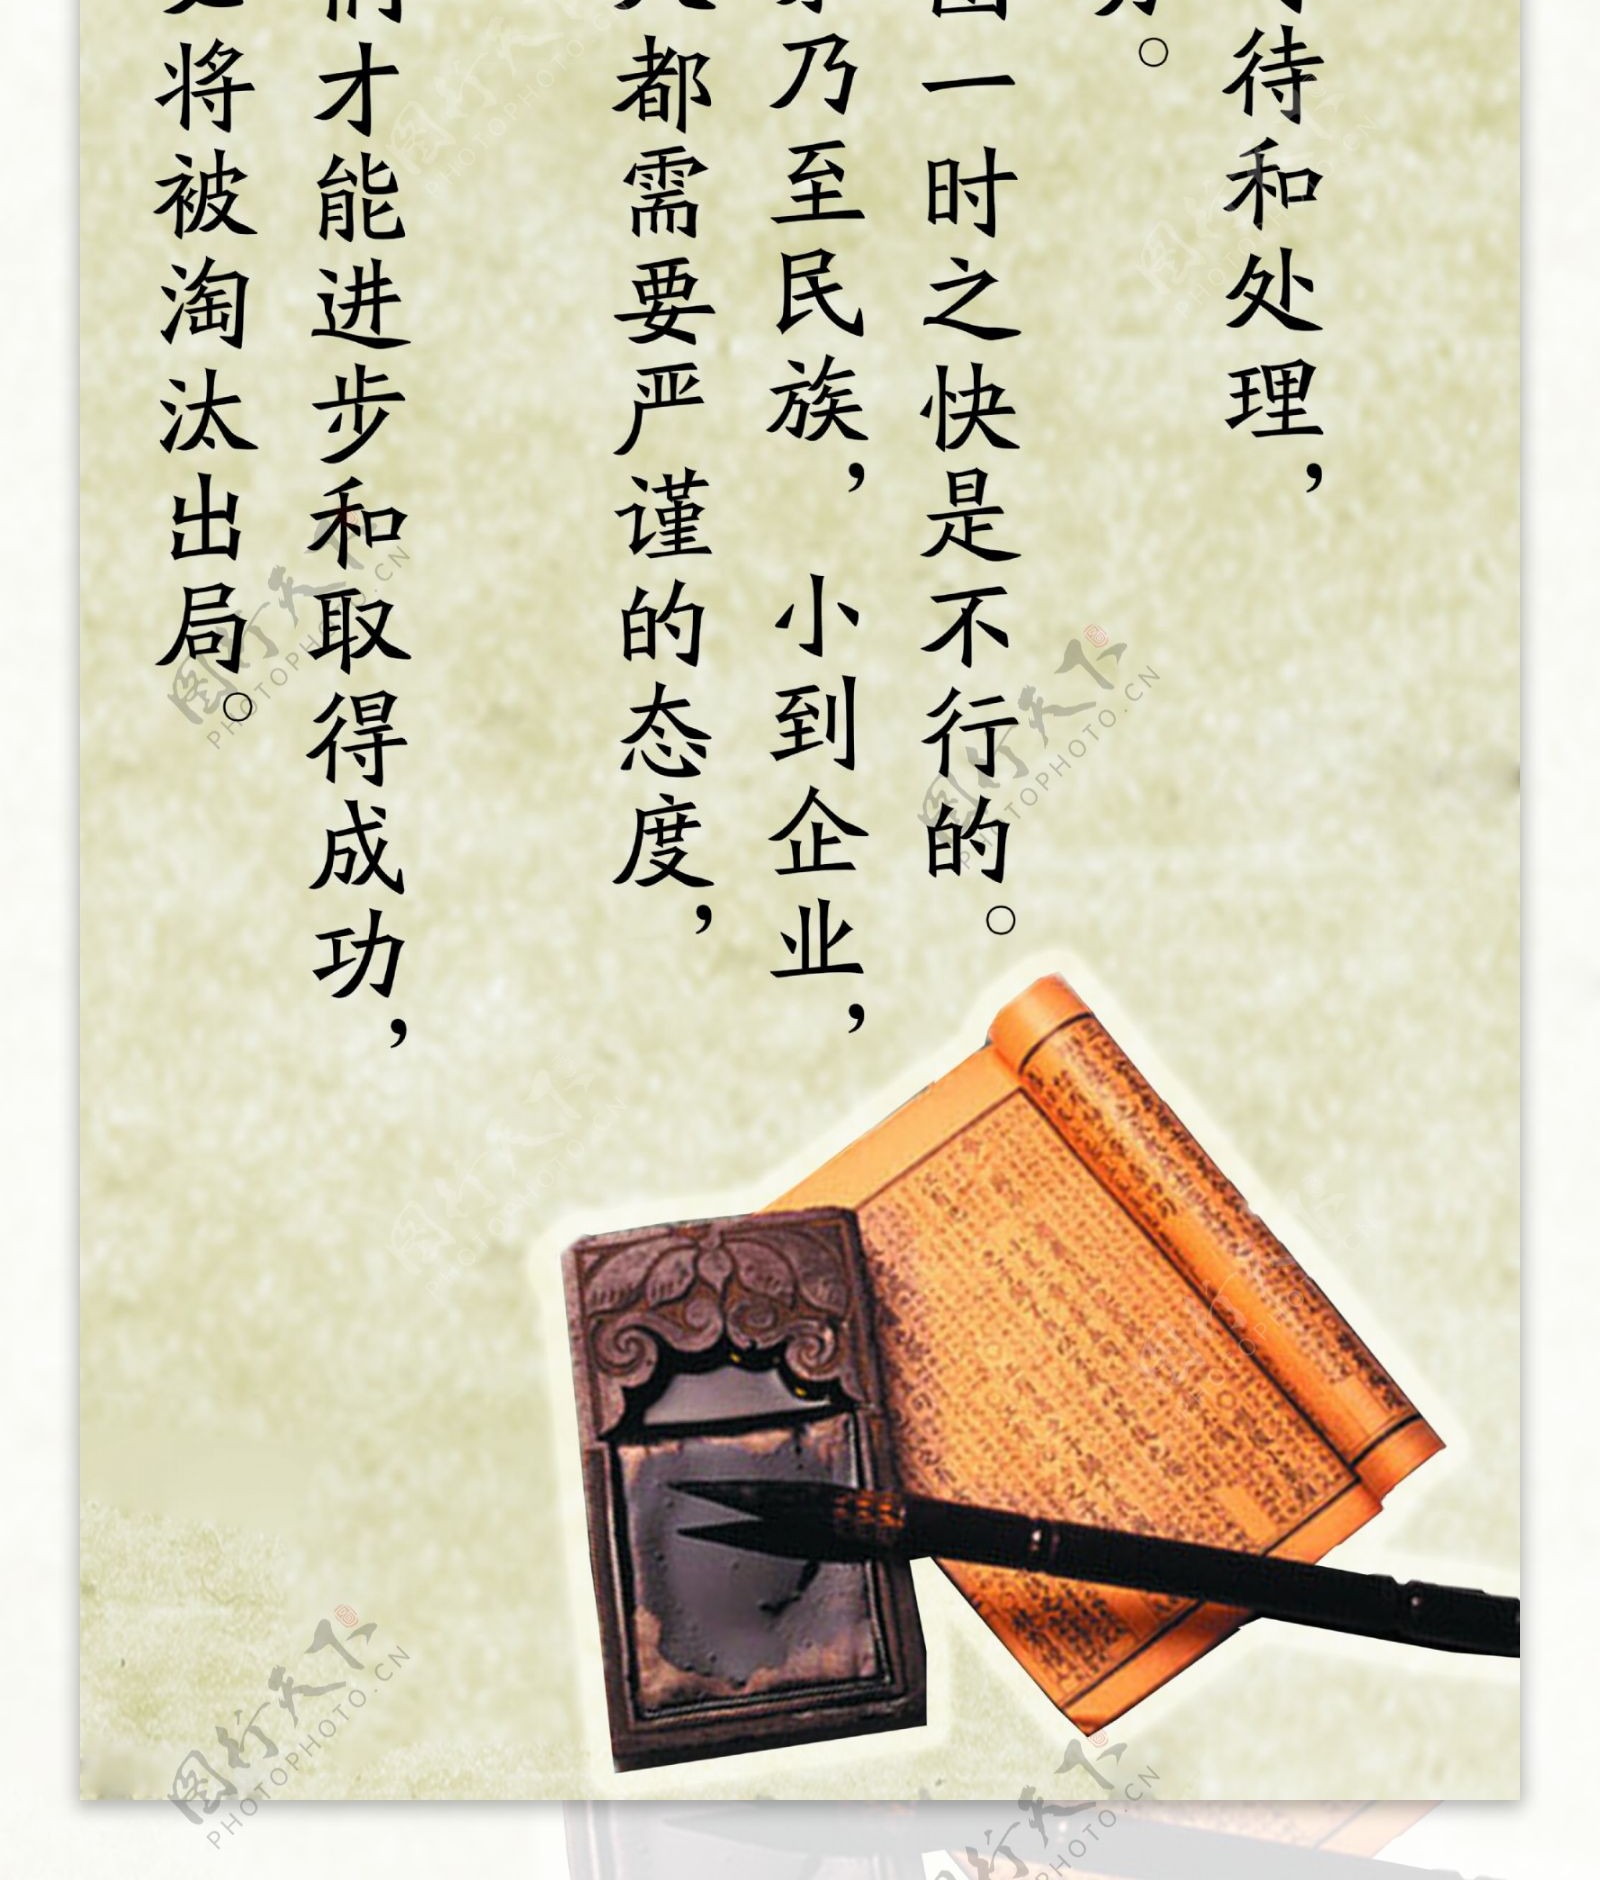 待和处理，
。
一时之快是不行的。
乃至民族，小到企业，
都需要严谨的态度，
才能进步和取得成功，
将被淘汰出局。
图行天下
PHOTOPHOTO.CN